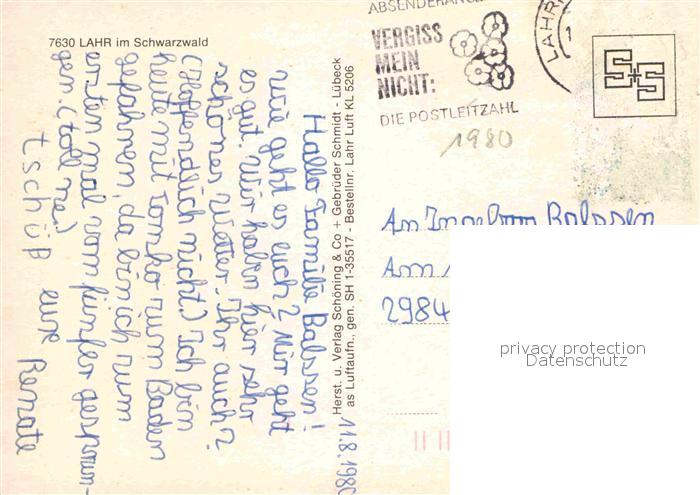 7630 LAHR im Schwarzwald
11.8.1980
Hallo Familie Balssen!
Wie geht es euch? Mir geht
es gut. Wir haben hier sehr
schönes Wetter. Ihr auch?
(Hoffendlich nicht) Ich bin
heute mit Tomko zum Baden
gefahren, da bin ich zum
ersten mal vom fünfer gesprun-
gen. (toll ne)
tschüß eure Renate
Herst. u. Verlag Schöning & Co + Gebrüder Schmidt - Lübeck
as Luftaufn., gen. SH 1-35517 - Bestellnr. Lahr Luft KL 5206
VERGISS
MEIN
NICHT:
DIE POSTLEITZAHL
LAHR
1980
S+S
An Ingeborg Balssen
Am
2984
privacy protection
Datenschutz